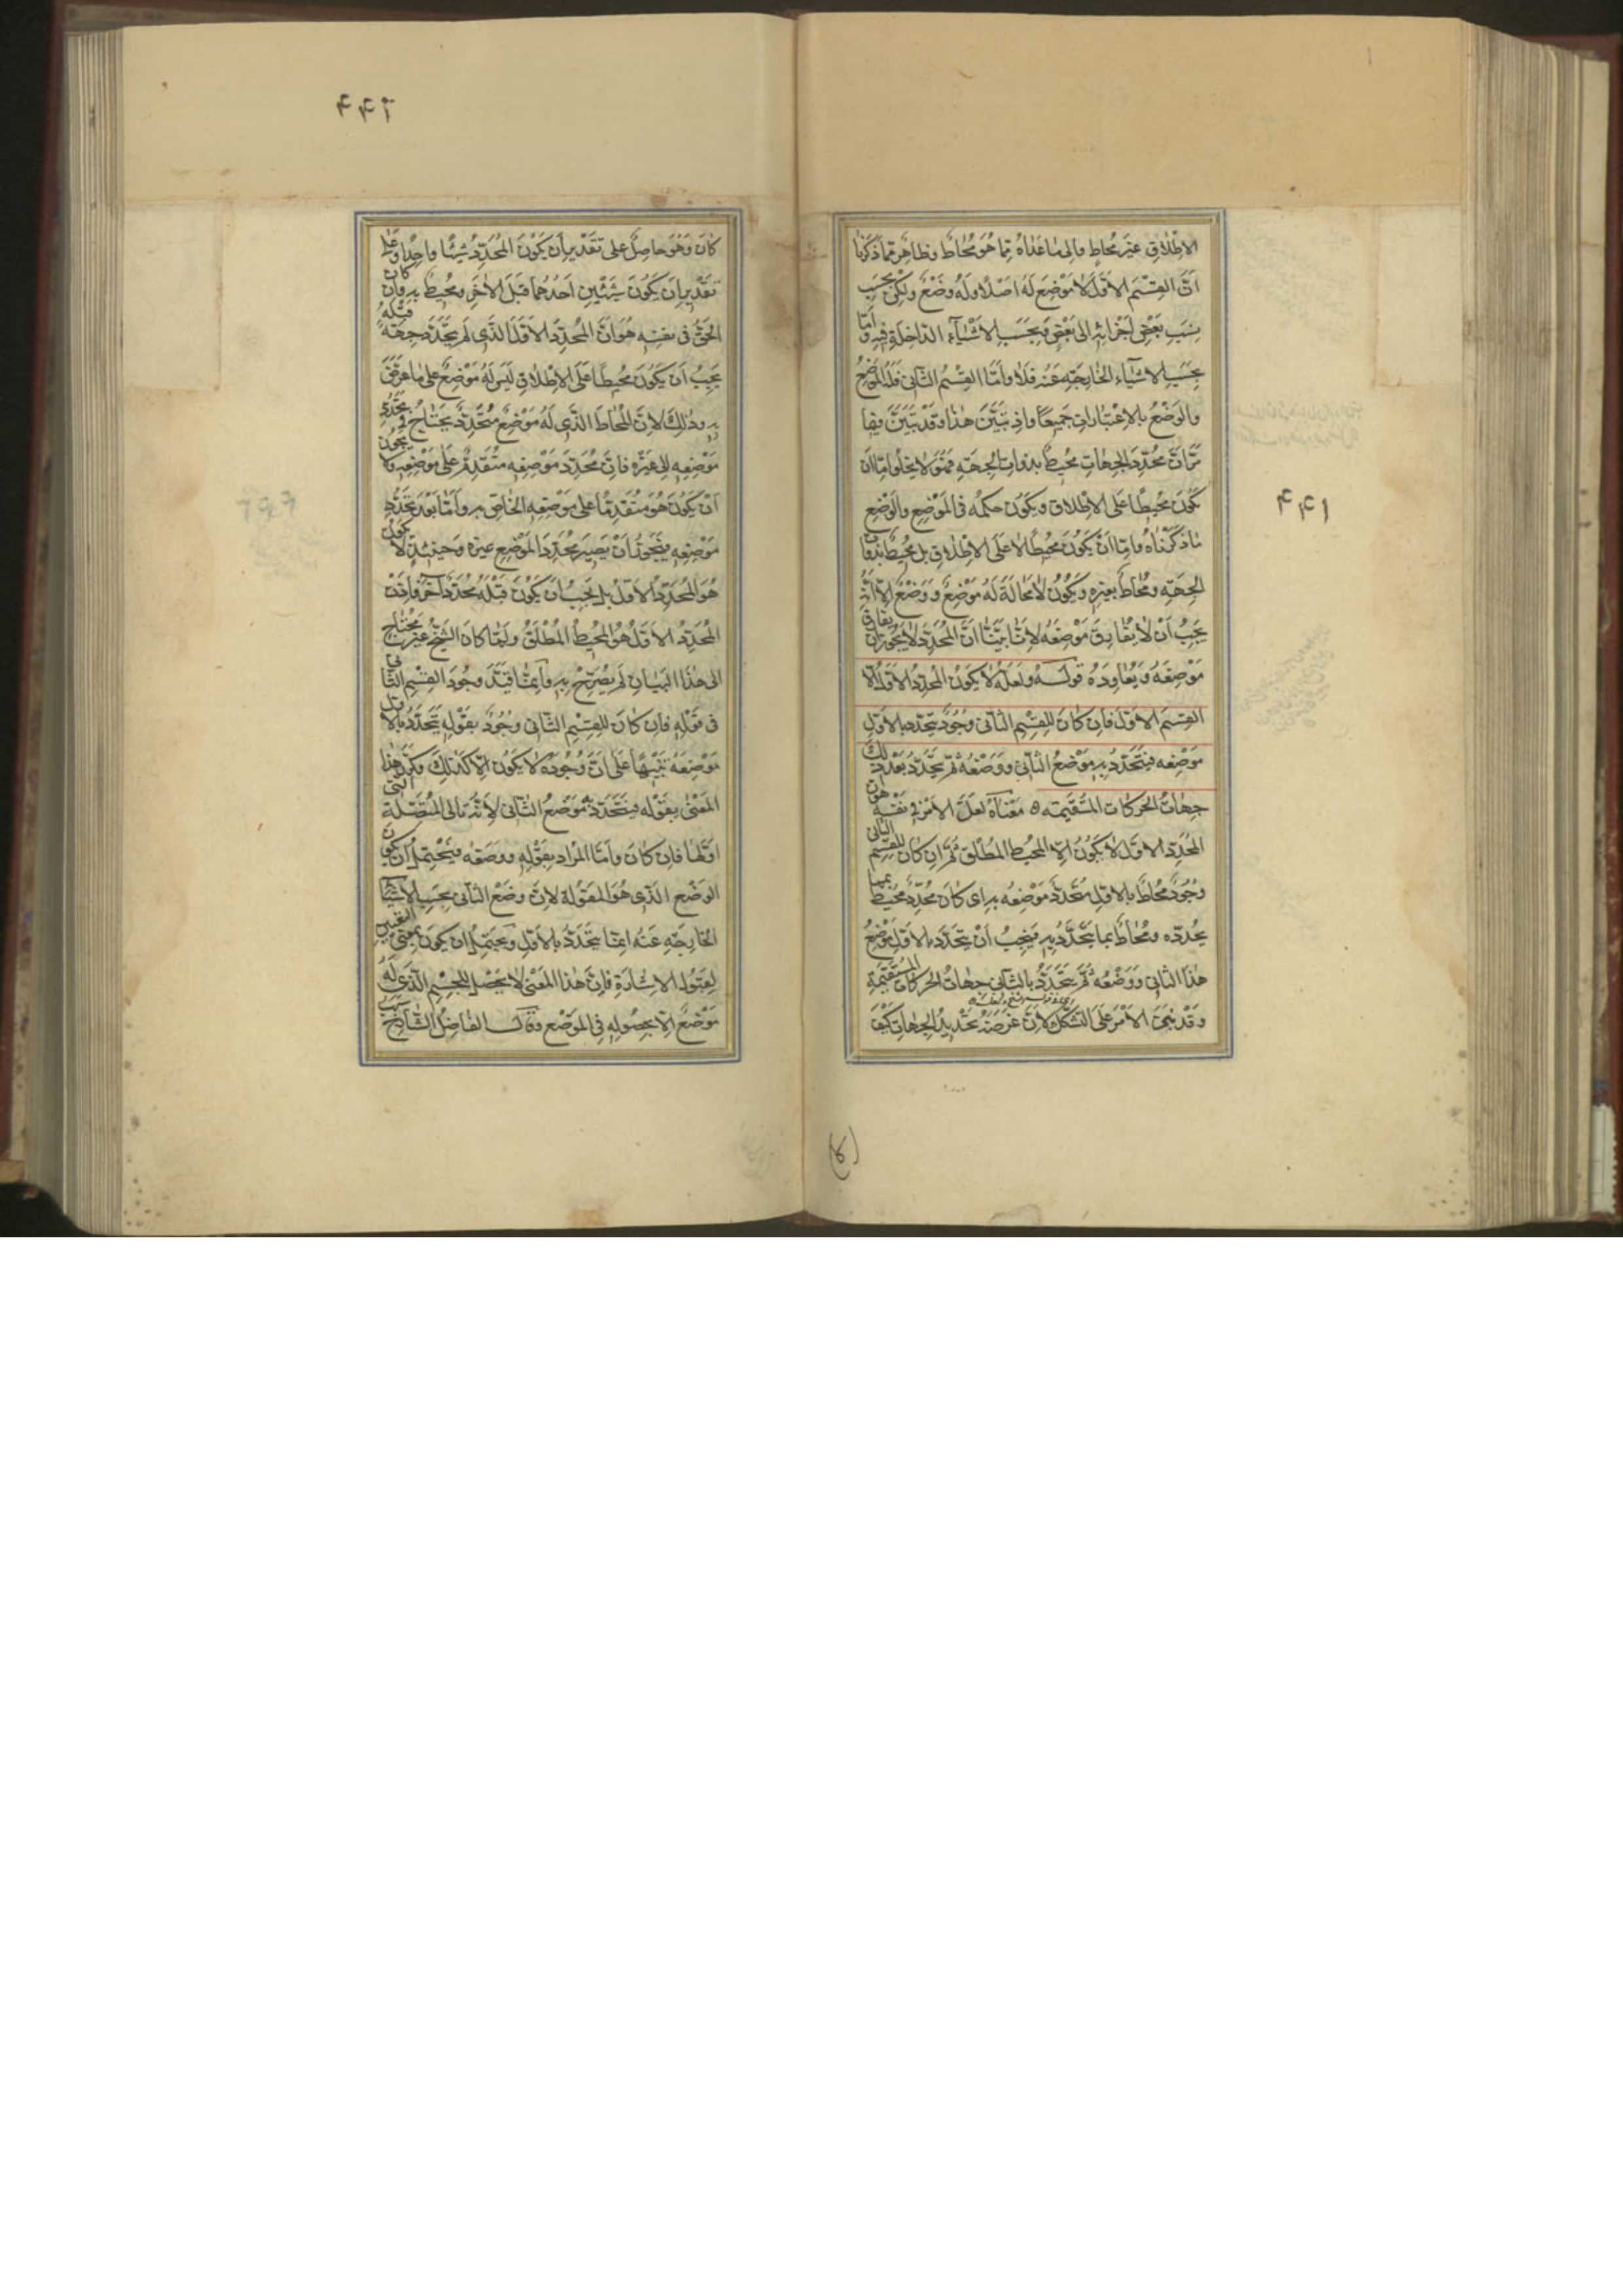 الاطلاق غير محاط والى ما عداه مما هو محاط وظاهر مما ذكرنا
ان القسم الاول لا موضع له اصلا وله وضع ولكن بحسب
نسب بعض اجزائه الى بعض وبحسب الاشياء الداخلة فيه واما
بحسب الاشياء الخارجة عنه فلا واما القسم الثاني فله الموضع
والوضع بالاعتبارات جميعا واذ تبين هذا وقد تبين فيما
مر ان محدد الجهات محيط بذوات الجهة فهو لا يخلو اما ان
يكون محيطا على الاطلاق ويكون حكمه في الموضع والوضع
ما ذكرناه واما ان يكون محيطا لا على الاطلاق بل محيط بذوات
الجهة ومحاط بغيره ويكون لا محالة له موضع ووضع الا انه
يجب ان لا يفارق موضعه لانا بينا ان المحدد لا يجوز ان يفارق
موضعه ويعاوده قوله ولعله لا يكون المحدد الاول الا
القسم الاول فان كان للقسم الثاني وجود يتحدد بالاول
موضعه فيتحدد به موضع الثاني ووضعه ثم يتحدد بعد ذلك
جهات الحركات المستقيمة ه معناه لعل الامر في نفسه هو ان
المحدد الاول لا يكون الا المحيط المطلق ثم ان كان للقسم الثاني
وجود محاط بالاول يتحدد موضعه به اى كان محدد محيط بما
يحدده ومحاط بما يتحدد به فيجب ان يتحدد بالاول موضع
هذا الثاني ووضعه ثم يتحدد بالثاني جهات الحركات المستقيمة
وقد بنى الامر على التشكك لان غرضه تحديد الجهات كيف
٤٤١
٤٤٢
كان وهو حاصل على تقدير ان يكون المحدد شيئا واحدا وعلى
تقدير ان يكون شيئين احدهما قبل الاخر ومحيط به وان كان
الحق في نفسه هو ان المحدد الاول الذى لم يتحدد جهة قبله
يجب ان يكون محيطا على الاطلاق ليس له موضع على ما عرض
به وذلك لان المحاط الذى له موضع متحدد يحتاج في تحدد
موضعه الى غيره فان محدد موضعه متقدم على موضعه ولا يجوز
ان يكون هو متقدما على موضعه الخاص به واما بعد تحدد
موضعه فيجوز ان يصير محدد الموضع غيره وحينئذ لا يكون
هو المحدد الاول بل يجب ان يكون قبله محدد آخر فاذن
المحدد الاول هو المحيط المطلق ولما كان الشيخ غير محتاج
الى هذا البيان لم يصرح به وانما قيد وجود القسم الثاني
في قوله فان كان للقسم الثاني وجود بقوله يتحدد بالاول
موضعه تنبيها على ان وجوده لا يكون الا كذلك وكرر هذا
المعنى بقوله فيتحدد به موضع الثاني لانه تالى المتصلة التي
اولها فان كان واما المراد بقوله ووضعه فيحتمل ان يكون
الوضع الذى هو المقولة لان وضع الثاني بحسب الاشياء
الخارجة عنه انما يتحدد بالاول ويحتمل ان يكون بمعنى التعيين
لقبول الاشارة فان هذا المعنى لا يحصل للجسم الذى له
موضع الا بحصوله في الموضع وقال الفاضل الشارح